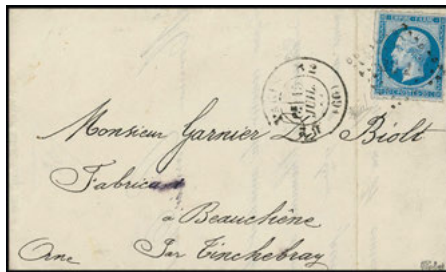 EMPIRE FRANC
(60)
Monsieur Garnier Biolt
Fabricant
à Beauchêne
Orne Par Tinchebray